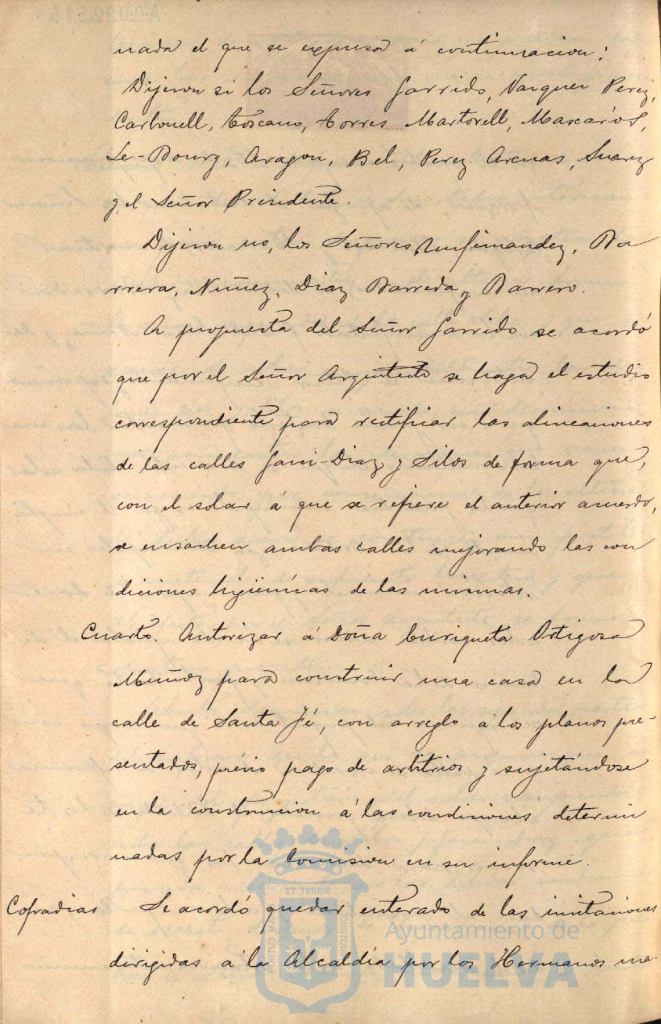 nada el que se expresa á continuacion:
Dijeron si los Señores Garrido, Vazquez Perez,
Carbonell, Toscano, Torres Martorell, Mascarós,
Le-Bourg, Aragon, Bel, Perez Arenas, Suarez
y el Señor Presidente.
Dijeron no, los Señores, Ba
rrera, Nuñez, Diaz Barreda y Barrero.
A propuesta del Señor Garrido se acordó
que por el Señor Arquitecto se haga el estudio
correspondiente para retificar las alineaciones
de las calles Garci-Diaz y Silos de forma que,
con el solar á que se refiere el anterior acuerdo,
se ensachen ambas calles mejorando las con
diciones higiénicas de las mismas.
Cuarto. Autorizar á Doña Enriqueta Ortigosa
Muñoz para construir una casa en la
calle de Santa Fé, con arreglo á los planos pre-
sentados, prévio pago de arbitrios y sujetándose
en la construccion á las condiciones determi
nadas por la Comision en su informe.
Cofradias Se acordó quedar enterado de las invitaciones
dirigidas á la Alcaldía por los Hermanos ma-
Ayuntamiento de
HUELVA